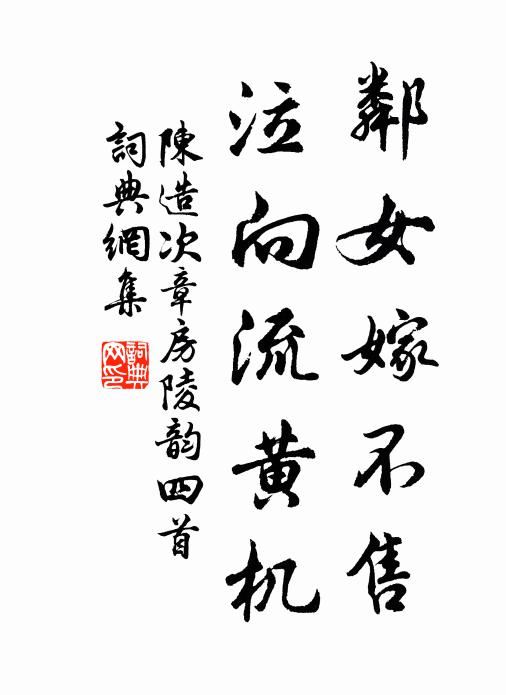 鄰女嫁不售
泣向流黄机
陳造次章房陵韵四首
詞典網集
詞典
网印